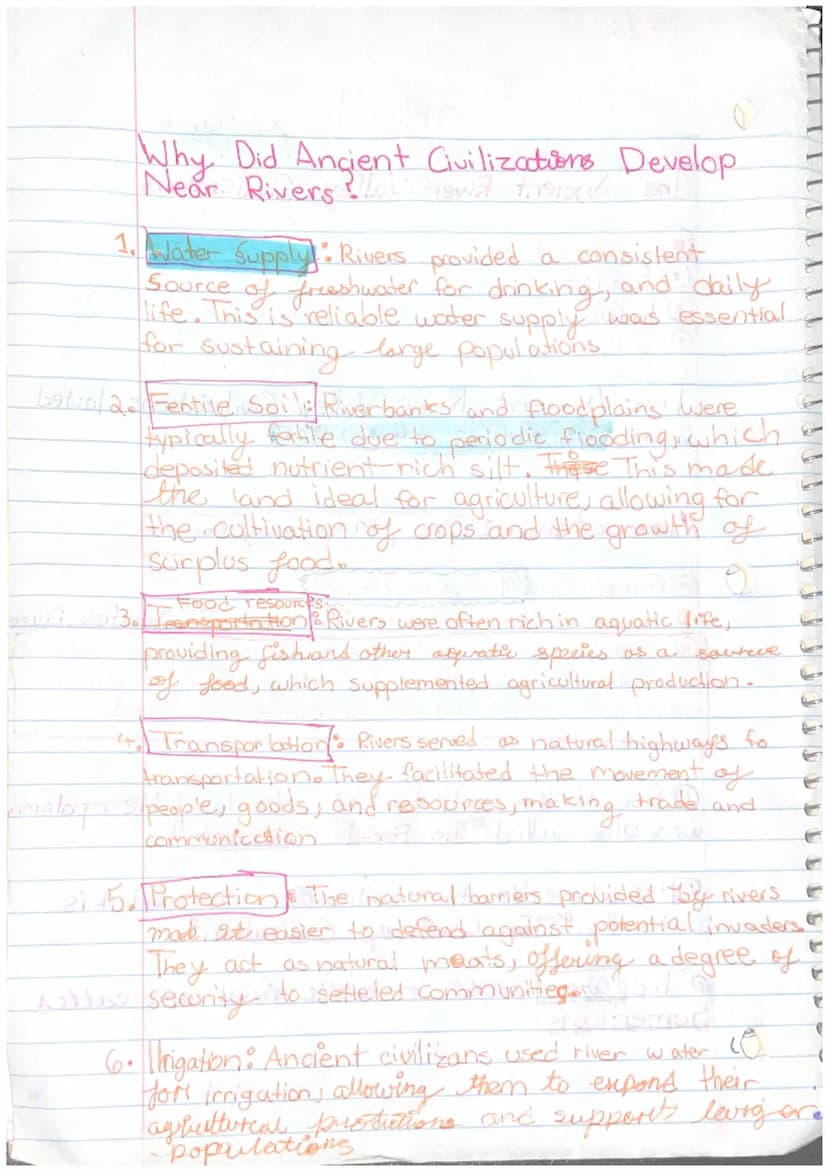 Why Did Ancient Civilizations Develop
Near Rivers?
1. Water Supply: Rivers provided a consistent
Source of freeshwater for drinking, and daily
life. This is reliable water supply was essential
for sustaining large populations
2. Fertile Soil: Riverbanks and floodplains were
typically fertile due to periodic flooding, which
deposited nutrient-rich silt. These This made
the land ideal for agriculture, allowing for
the cultivation of crops and the growth of
surplus food.
Food resources
3. Transportation: Rivers were often rich in aquatic life,
providing fish and other aquatic species as a source
of food, which supplemented agricultural production.
4. Transportation: Rivers served as natural highways fo
transportation. They facilitated the movement of
people, goods, and resources, making trade and
communication
5. Protection: The natural barriers provided by rivers
made it easier to defend against potential invaders
They act as natural moats, offering a degree of
security to setleled communities.
6. Irrigation: Ancient civilizans used river water
for irrigation, allowing them to expand their
agricultural productions and support larger
populations